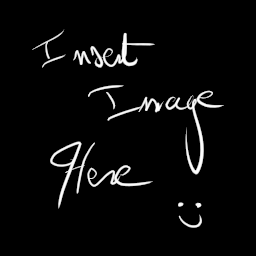 Insert
Image
Here